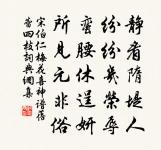 靜看隋堤人
紛紛幾榮辱
蠻腰休逞妍
所見元非俗
宋伯仁梅花喜神譜蓓
蕾四枝詞典網集